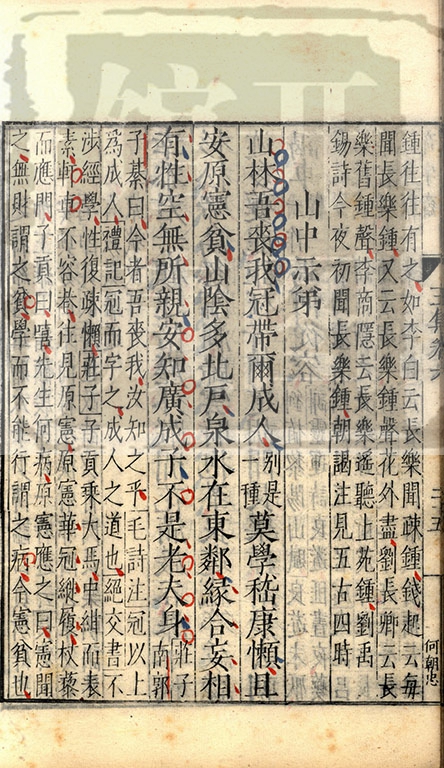 鍾往往有之如李白云長樂聞疎鍾錢起云每
聞長樂鍾又云長樂鍾聲花外盡劉長卿云長
樂舊鍾聲李商隱云長樂遙聽上苑鍾劉禹
錫詩今夜初聞長樂鍾朝謁注見五古四時
山中示弟
山林吾喪我冠帶爾成人別是一種莫學嵇康懶且
安原憲貧山陰多北戶泉水在東鄰緣合妄相
有性空無所親安知廣成子不是老夫身莊子南郭
子綦曰今者吾喪我汝知之乎毛詩注冠以上
爲成人禮記冠而字之成人之道也絕交書不
涉經學性復疎懶莊子子貢乘大馬中紺而表
素軒車不容巷往見原憲原憲華冠縰履杖藜
而應門子貢曰嘻先生何病原憲應之曰憲聞
之無財謂之貧學而不能行謂之病今憲貧也
何朝忠